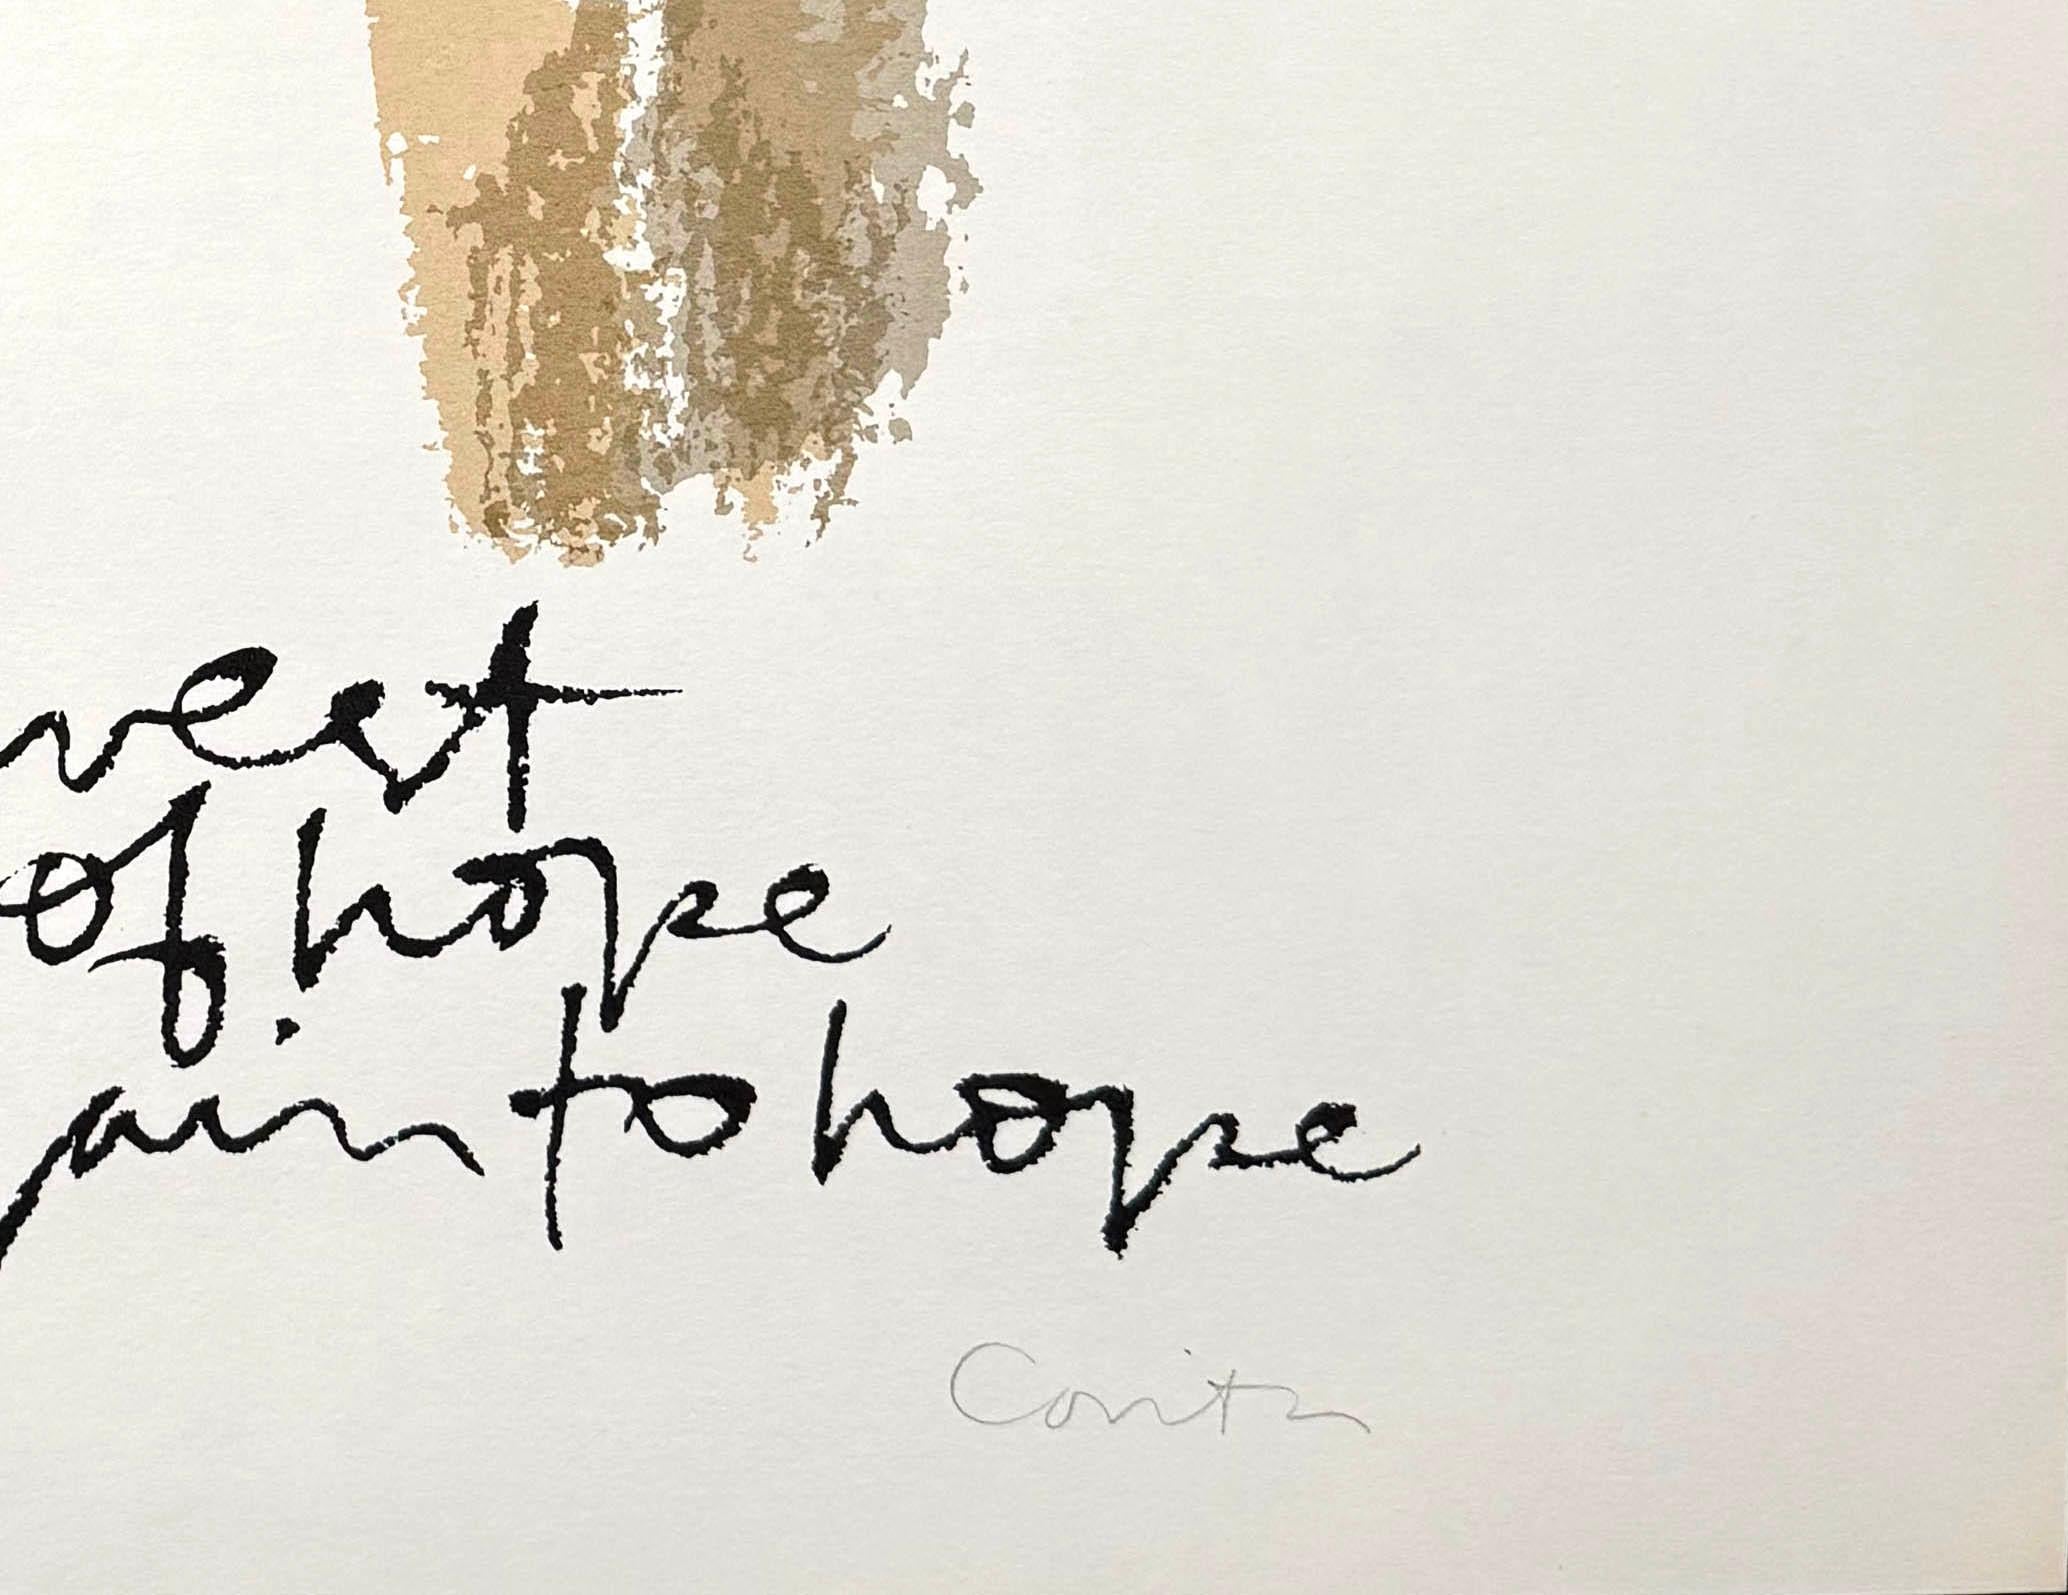 vest
of hope
ain to hope
Corita